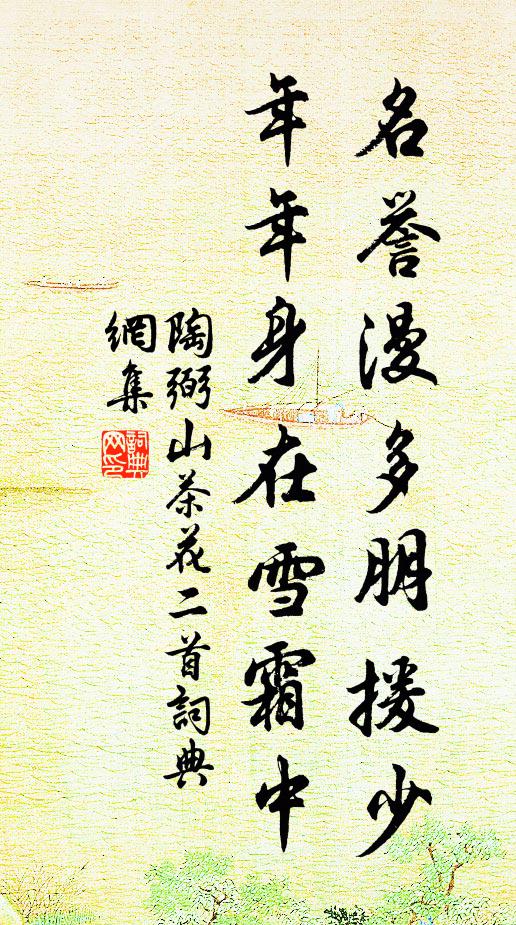 名譽漫多朋援少
年年身在雪霜中
陶弼山茶花二首詞典
網集
詞典
网印